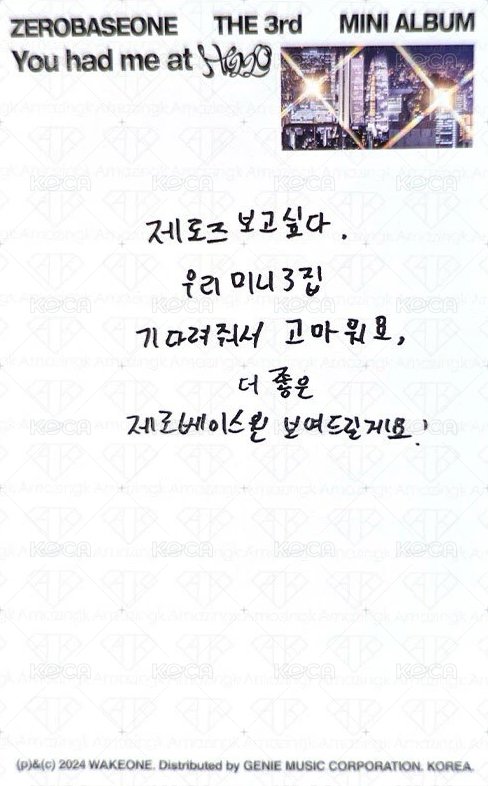 ZEROBASEONE THE 3rd MINI ALBUM
You had me at Hello
제로즈 보고싶다.
우리 미니 3집
기다려줘서 고마워요,
더 좋은
제로베이스원 보여드릴게요!
KOCA
Amazingk
(p)&(c) 2024 WAKEONE. Distributed by GENIE MUSIC CORPORATION. KOREA.